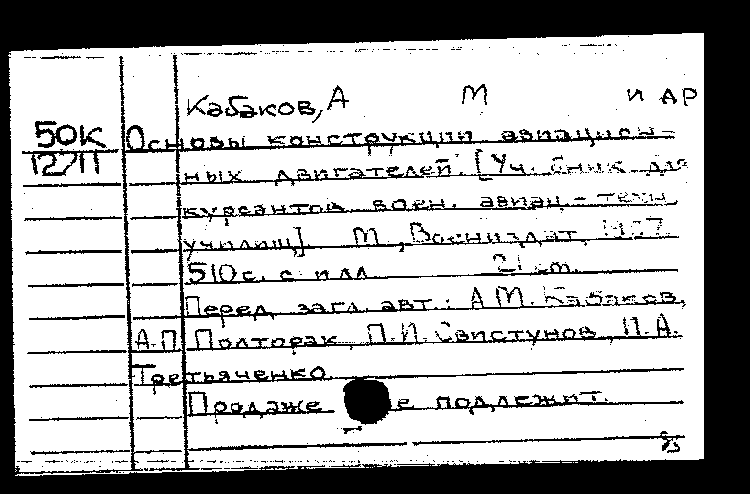 Кабаков, А М и др
50К Основы конструкции авиацион-
12711 ных двигателей. [Учебник для
курсантов воен. авиац.-техн.
училищ]. М., Воениздат, 1957.
510 с. с илл. 21 см.
Перед загл. авт.: А.М. Кабаков,
А.П. Полторак, П.И. Свистунов, П.А.
Третьяченко
Продаже не подлежит.